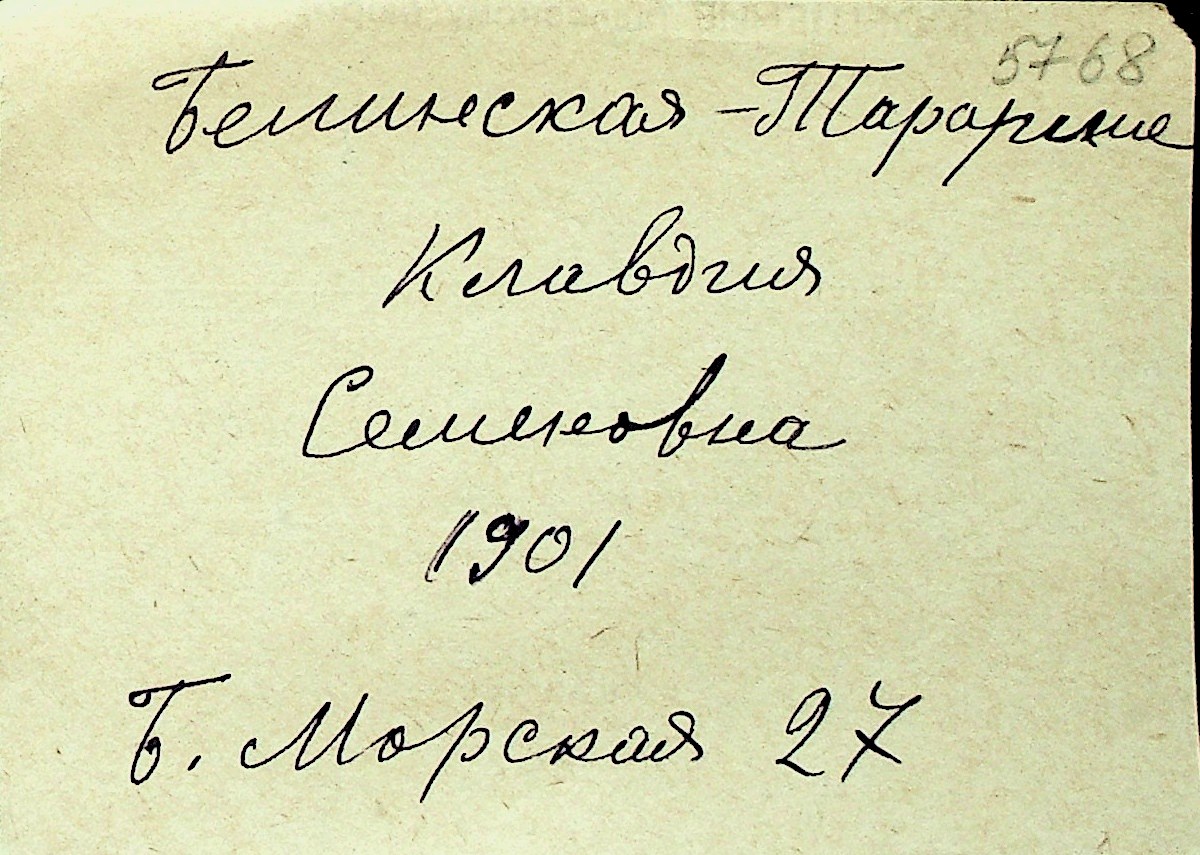 5768
Белинская -
Клавдия
Семеновна
1901
Б. Морская 27